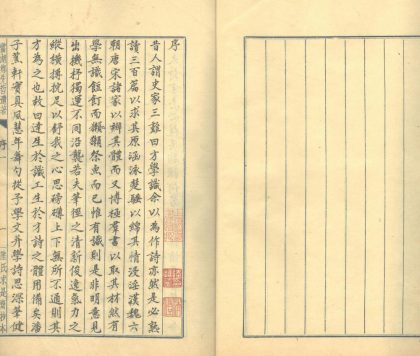 序
昔人謂史家三難曰才學識余以為作詩亦然是必熟
讀三百篇以求其原涵泳楚騷以綿其情浸淫漢魏六
朝唐宋諸家以辨其體而又博極羣書以取其材然有
學無識餖飣而獺祭魚而已惟有識則是非明意見
出機杼獨運不同沿襲若夫筆徑之清新俊逸氣力之
縱橫足以舒我之心思磅礴上下無所不適則其
才為之也故曰達生於識工生於才詩之體用備矣潘
子蕙軒實具風慧年舞勺從予學文并學詩思深筆健
序一
一